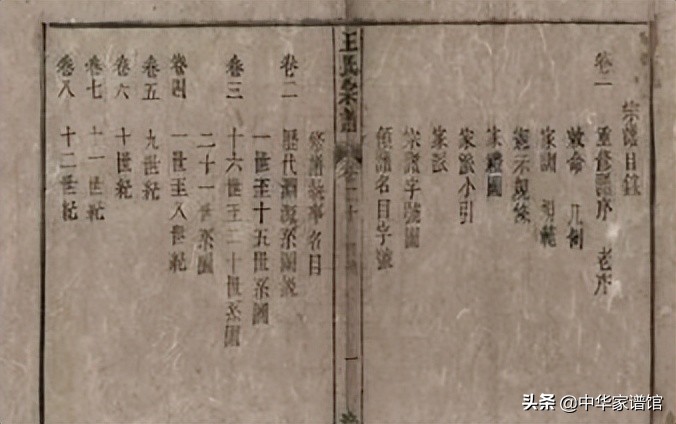 宗譜目錄
卷一 重修譜序 老序
敕命 凡例
家訓 範
憲示規條
家禮圖
家派小引
家派
宗譜字號圖
領譜名目字號
王氏宗譜 卷一 一
修譜執事名目
卷二 歷代淵源系圖說
一世至十五世系圖
卷三 十六世至二十世系圖
二十一世系圖
卷四 一世至八世紀
卷五 九世紀
卷六 十世紀
卷七 十一世紀
卷八 十二世紀
头条 @中华家谱馆